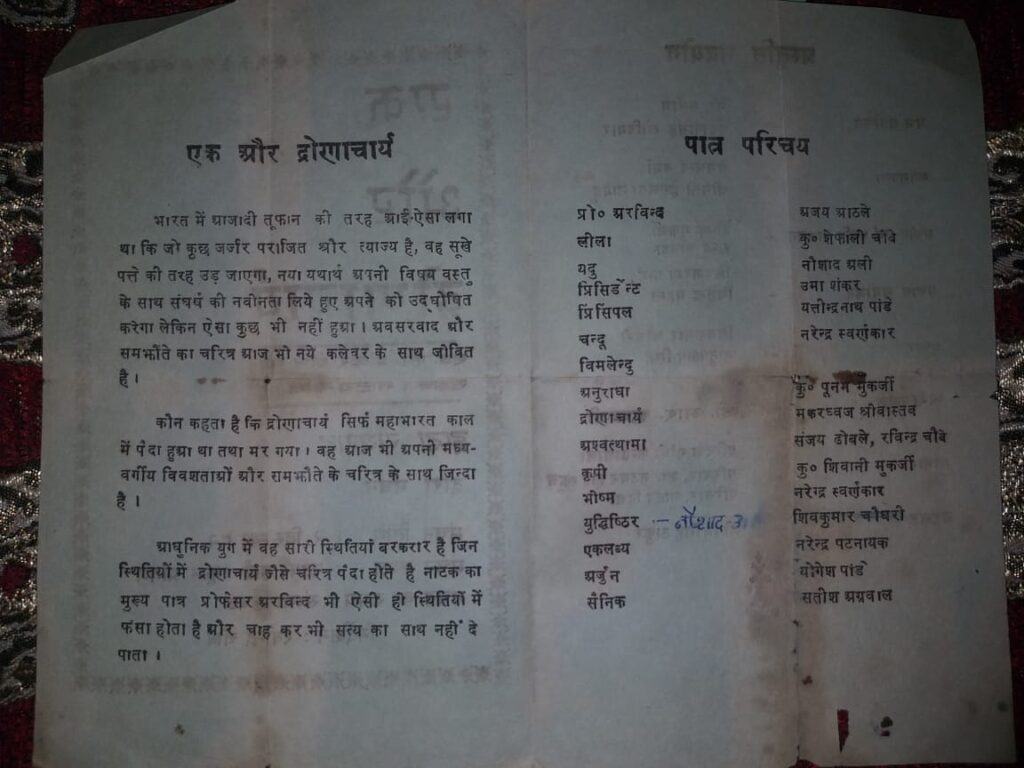 एक और द्रोणाचार्य
भारत में आजादी तूफान की तरह आई-ऐसा लगा
था कि जो कुछ जर्जर पराजित और त्याज्य है, वह सूखे
पत्ते की तरह उड़ जाएगा, नया यथार्थ अपनी विषय वस्तु
के साथ संघर्ष की नवीनता लिये हुए अपने को उद्घोषित
करेगा लेकिन ऐसा कुछ भी नहीं हुआ। अवसरवाद और
समझौते का चरित्र आज भी नये कलेवर के साथ जीवित
है।
कौन कहता है कि द्रोणाचार्य सिर्फ महाभारत काल
में पैदा हुआ था तथा मर गया। वह आज भी अपनी मध्य-
वर्गीय विवशताओं और समझौते के चरित्र के साथ जिन्दा
है।
आधुनिक युग में वह सारी स्थितियां बरकरार है जिन
स्थितियों में द्रोणाचार्य जैसे चरित्र पैदा होते है नाटक का
मुख्य पात्र प्रोफेसर अरविन्द भी ऐसी ही स्थितियों में
फंसा होता है और चाह कर भी सत्य का साथ नहीं दे
पाता।
पात्र परिचय
प्रो० अरविन्द अजय आठले
लीला कु० शेफाली चौबे
यदु नौशाद अली
प्रिसिडेन्ट उमा शंकर
प्रिंसिपल यतीन्द्रनाथ पांडे
चन्दू नरेन्द्र स्वर्णकार
विमलेन्दु
अनुराधा कु० पूनम मुकर्जी
द्रोणाचार्य मकरध्वज श्रीवास्तव
अश्वत्थामा संजय ढोबले, रविन्द्र चौबे
कृपी कु० शिवानी मुकर्जी
भीष्म नरेन्द्र स्वर्णकार
युद्धिष्ठिर :- नौशाद शिवकुमार चौधरी
एकलव्य नरेन्द्र पटनायक
अर्जुन योगेश पांडे
सैनिक सतीश अग्रवाल